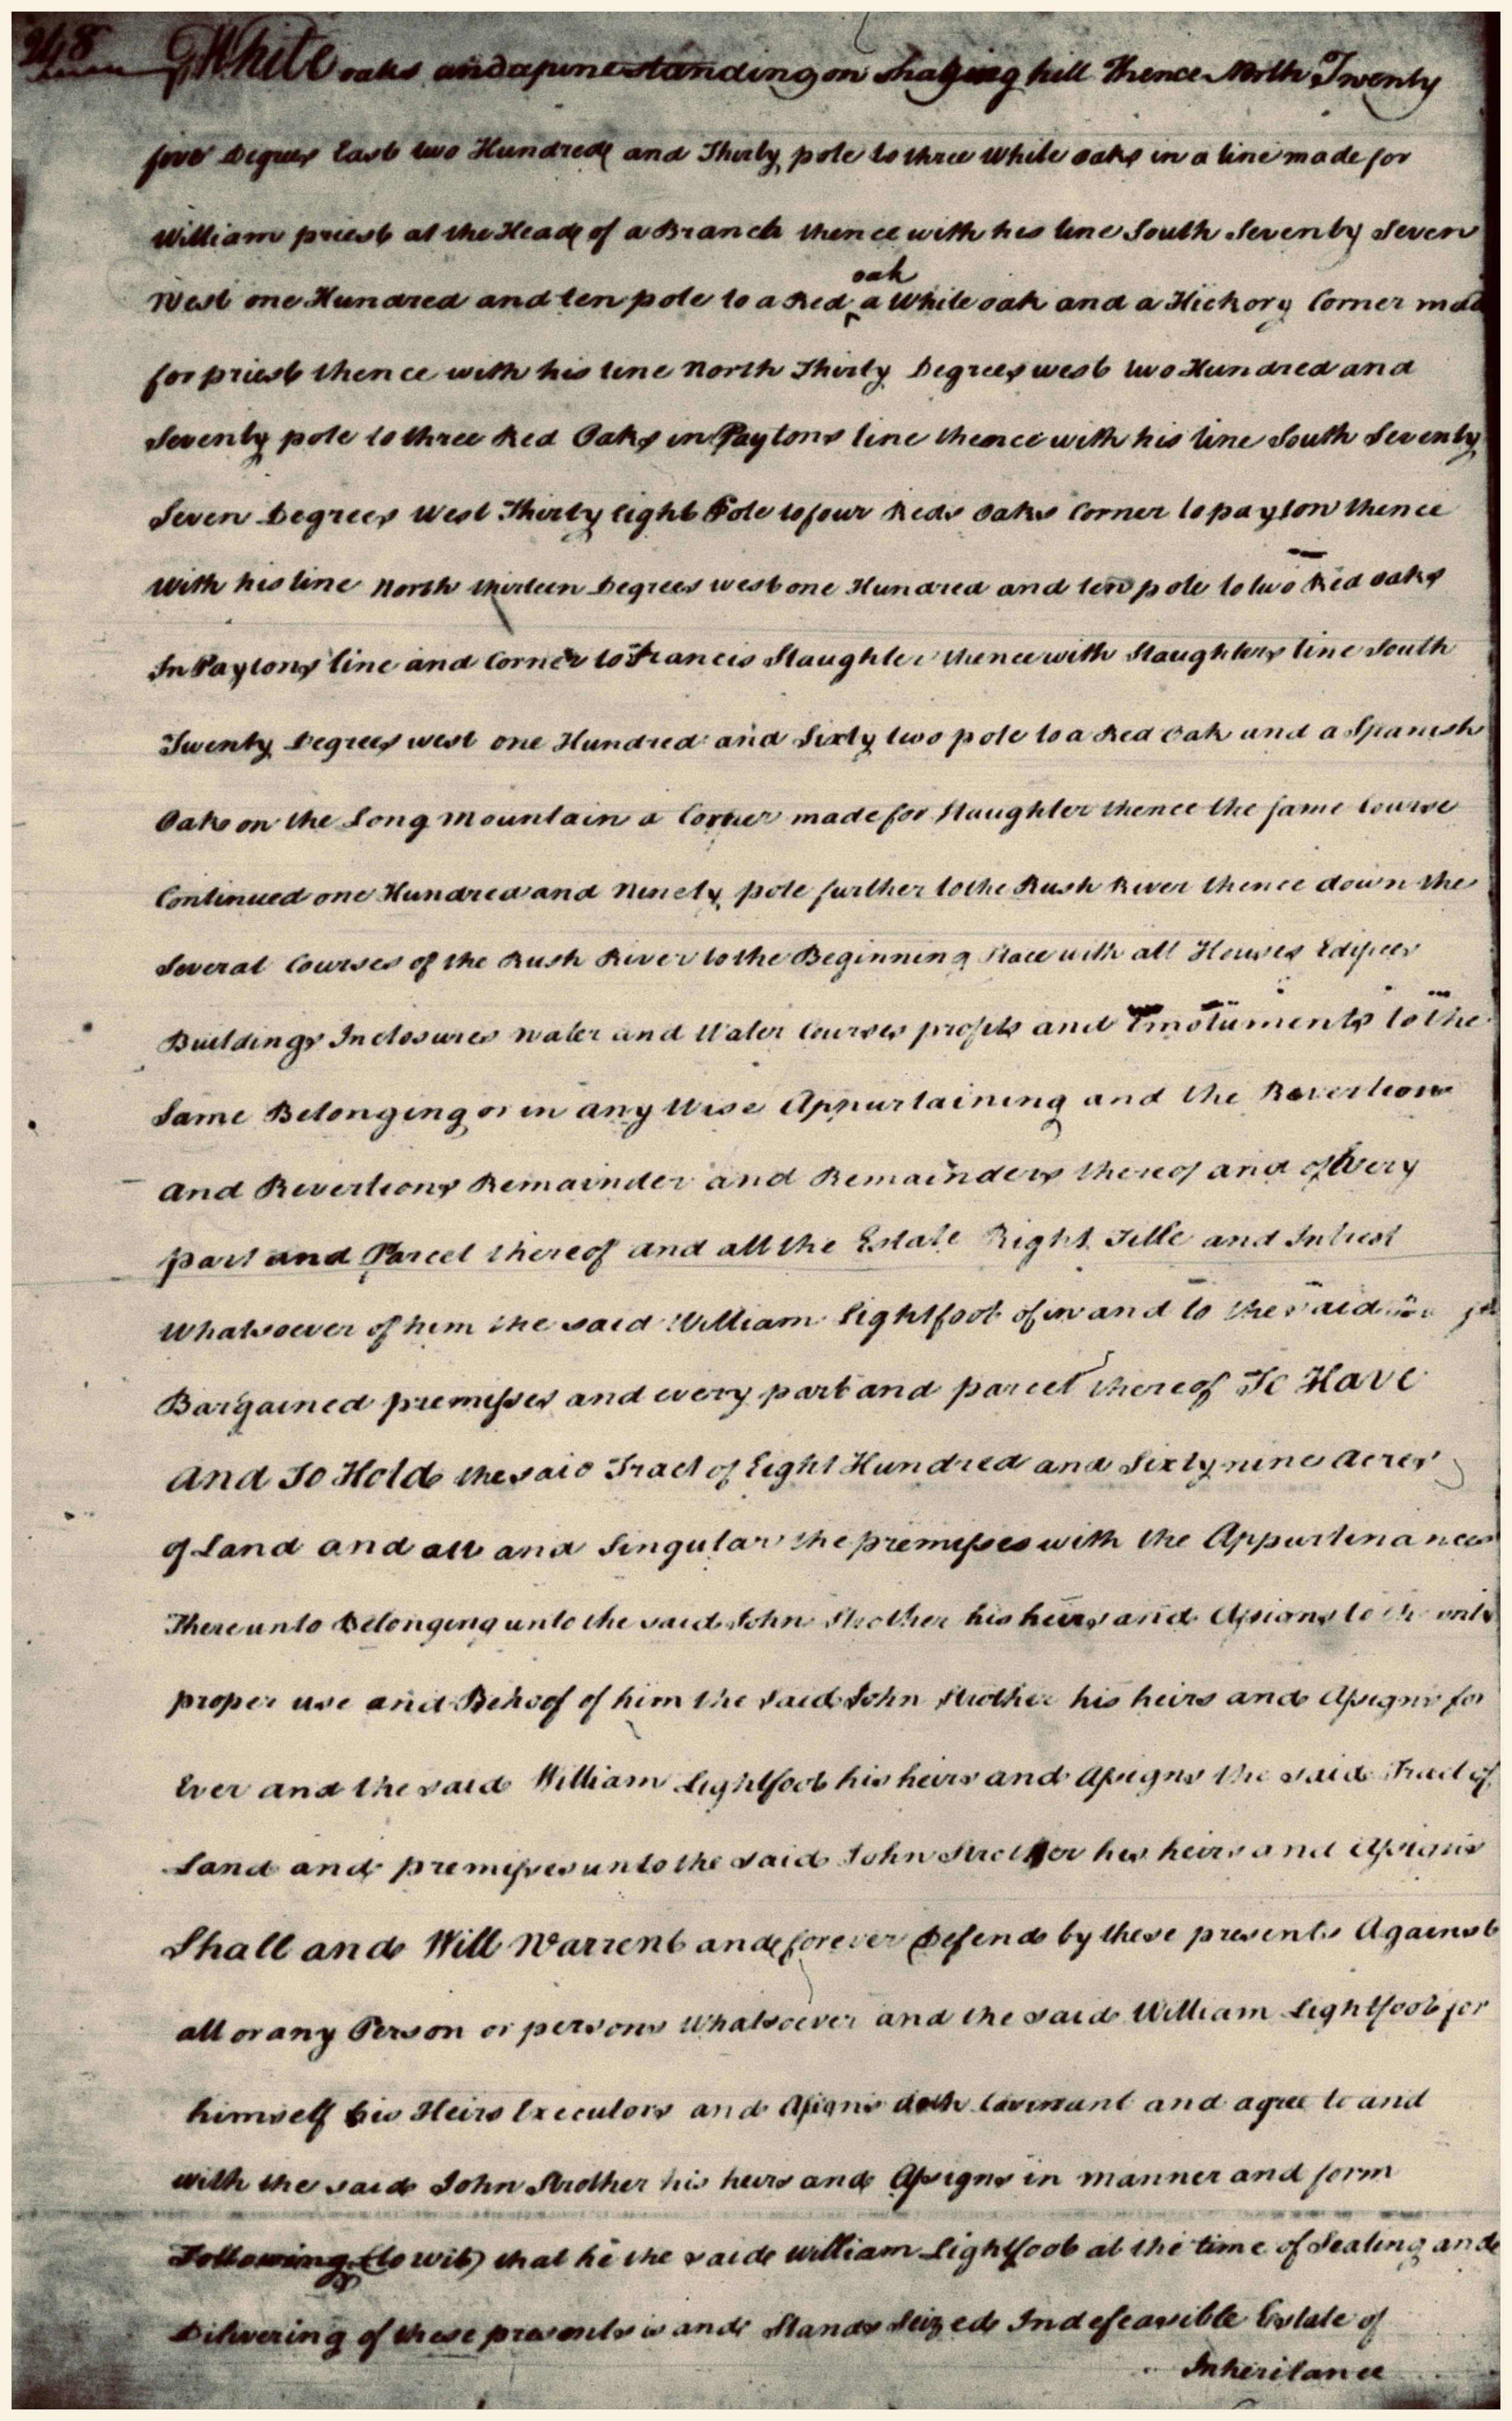 248
White oaks and a pine standing on hill Thence North Twenty
five Degrees East two Hundred and Thirty pole to three White oaks in a line made for
William priest at the Head of a Branch thence with his line South Seventy Seven
oak
West one Hundred and ten pole to a Red ‸ a White oak and a Hickory Corner made
for priest thence with his line North Thirty Degrees west two Hundred and
Seventy pole to three Red Oaks in Paytons line thence with his line South Seventy
Seven Degrees West Thirty Eight Pole to four Reds Oaks Corner to payton thence
With his line North thirteen Degrees west one Hundred and ten pole to two Red oaks
In Paytons line and Corner to Francis Slaughter thence with Slaughters line South
Twenty Degrees west one Hundred and Sixty two pole to a Red Oak and a Spanish
Oak on the Long Mountain a Corner made for Slaughter thence the same Course
Continued one Hundred and Ninety pole further to the Rush River thence down the
Several Courses of the Rush River to the Beginning Place with all Houses Edifices
Buildings Inclosures water and Water Courses profits and Emoluments to the
Same Belonging or in any Wise Appurtaining and the Revertion
and Revertions Remainder and Remainders thereof and of Every
part and Parcel thereof and all the Estate Right Title and Intrest
Whatsoever of him the said William Lightfoot of in and to the said
Bargained premisses and every part and parcel thereof To Have
And To Hold the said Tract of Eight Hundred and Sixty nine Acres
of Land and all and Singular the premisses with the Appurtinances
Thereunto Belonging unto the said John Strother his heirs and Assigns to the only
proper use and Behoof of him the Said John Strother his heirs and Assigns for
Ever and the said William Lightfoot his heirs and Assigns the said Tract of
Land and premisses unto the said John Strother his heirs and Assigns
Shall and Will Warrent and forever Defend by these presents Against
all or any Person or persons Whatsoever and the said William Lightfoot for
himself his Heirs Executors and Assigns doth Covenant and agree to and
with the said John Strother his heirs and Assigns in manner and form
Following (to wit) that he the said William Lightfoot at the time of Sealing and
Dilivering of these presents is and Stands Seized Indefeasible Estate of
Inheritance